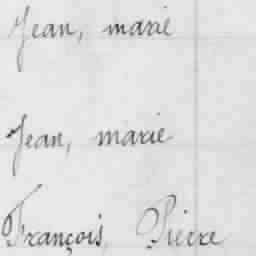 Jean, marie
Jean, marie
François, Pierre